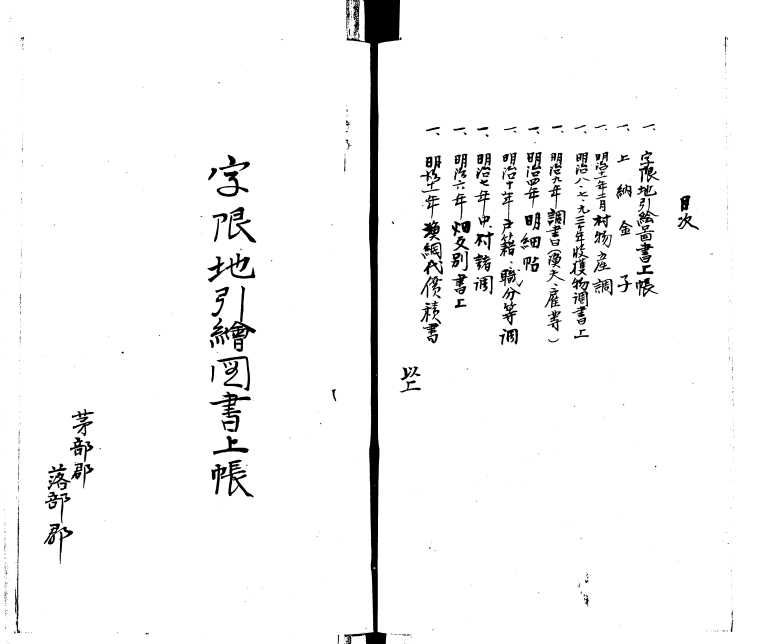 目次
一、字限地引絵図書上帳
一、上納金子
一、明治十一年十二月村物産調
一、明治八・七・九三ヶ年收穫物調書上
一、明治九年調書(漁夫、雇等)
一、明治四年明細帖
一、明治十年戸籍、職分等調
一、明治七年中、村諸調
一、明治六年畑文別書上
一、明治十一年漁網代價積書
以上
字限地引繪図書上帳
茅部郡
落部郡